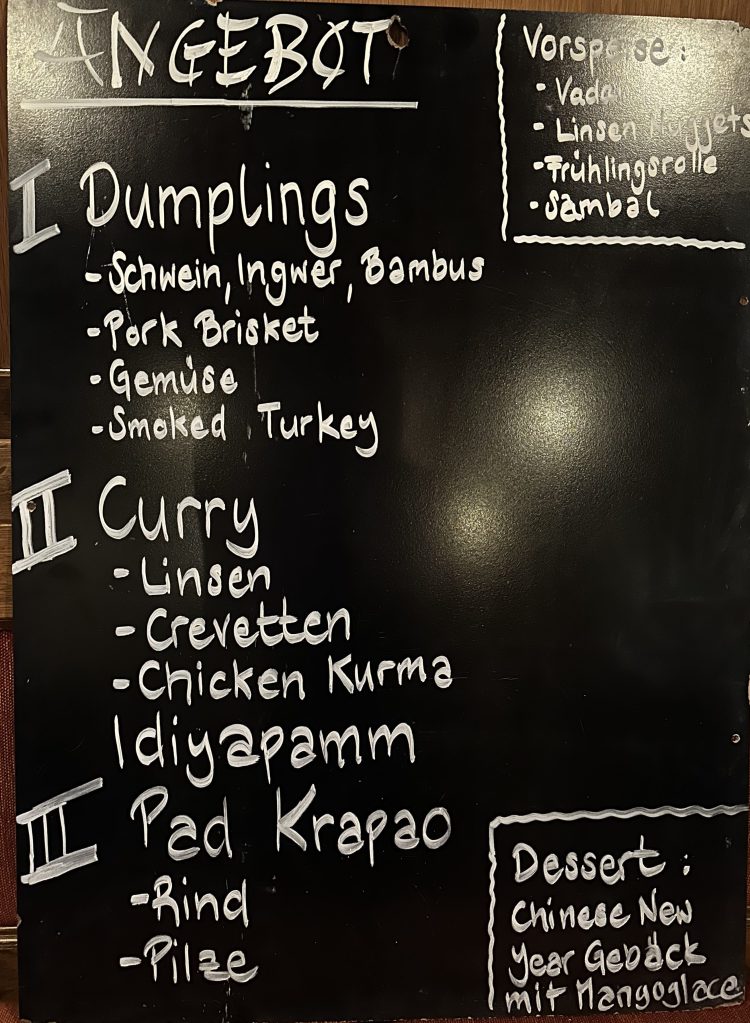 ANGEBOT
Vorspeise :
- Vadai
- Linsen Nuggets
- Frühlingsrolle
- Sambal
I Dumplings
- Schwein, Ingwer, Bambus
- Pork Brisket
- Gemüse
- Smoked Turkey
II Curry
- Linsen
- Crevetten
- Chicken Kurma
Idiyapamm
III Pad Krapao
- Rind
- Pilze
Dessert :
Chinese New
Year Gebäck
mit Mangoglace